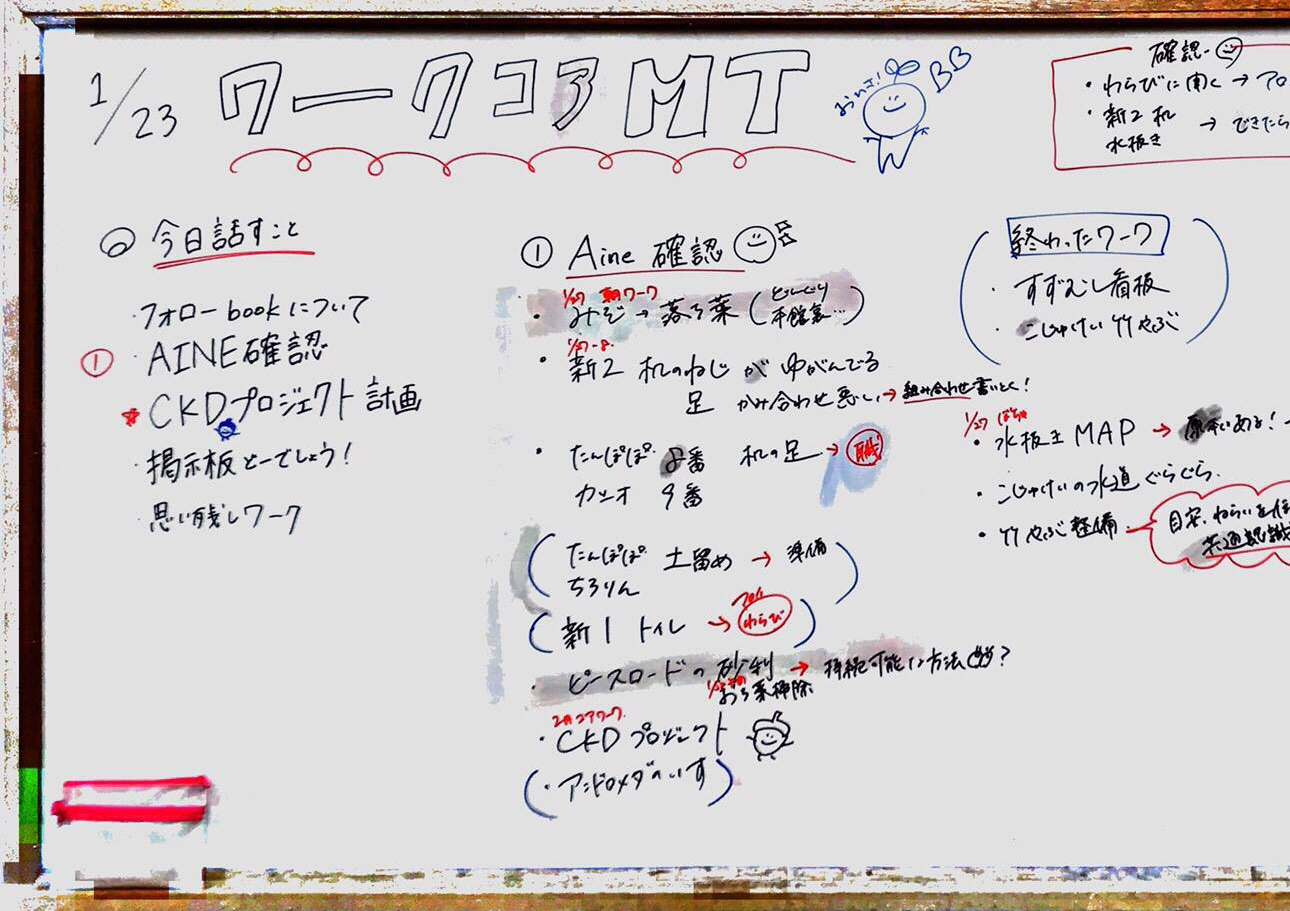 1/23 ワークコアMT
BB
確認
・わらびに聞く→
・新2 机
水抜き → できたら
◎ 今日話すこと
・フォローbookについて
① ・AINE確認
・CKDプロジェクト計画
・掲示板どーでしょう！
・思い残しワーク
① Aine 確認
1/27 ワーク
・みぞ→落ち葉（どんぐり
本館裏…）
1/27-8
・新2 机のねじが ゆがんでる
足 かみ合わせ悪い→組み合わせ書いとく！
・たんぽぽ 8番 机の足→職
カシオ 9番
（たんぽぽ 土留め → 準備
ちろりん ）
（新1 トイレ → わらび）
・ピースロードの砂利 → 持続可能な方法は？
おち葉掃除
2月コアワーク
・CKDプロジェクト
（・アンドロメダのいす）
（終わったワーク
・すずむし看板
・こじゅけい竹やぶ）
1/27
・水抜きMAP → 原本ある！
・こじゅけいの水道ぐらぐら
・竹やぶ整備
目安、
共通認識